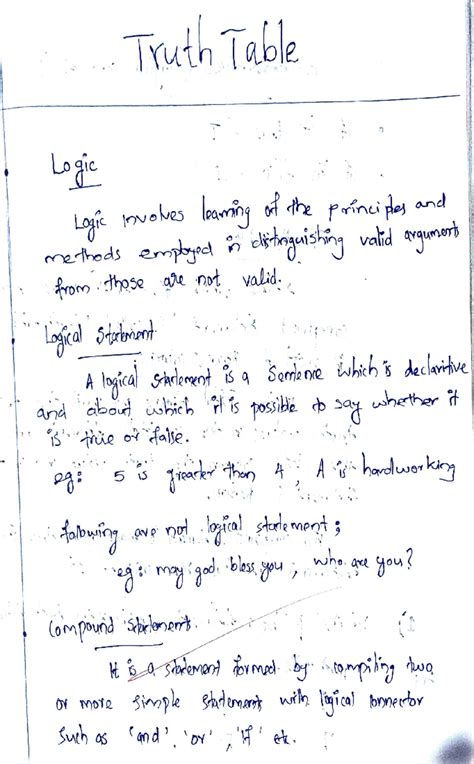 Truth Table
Logic
Logic involves learning of the principles and
methods employed in distinguishing valid arguments
from those are not valid.
Logical Statement
A logical statement is a Sentence which is declaritive
and about which it is possible to say whether it
is true or false.
eg: 5 is greater than 4, A is hardworking
following are not logical statement;
eg: may god bless you, who are you?
Compound Statements
It is a statement formed by compiling two
or more simple statements with logical connector
such as 'and', 'or', 'If' etc.